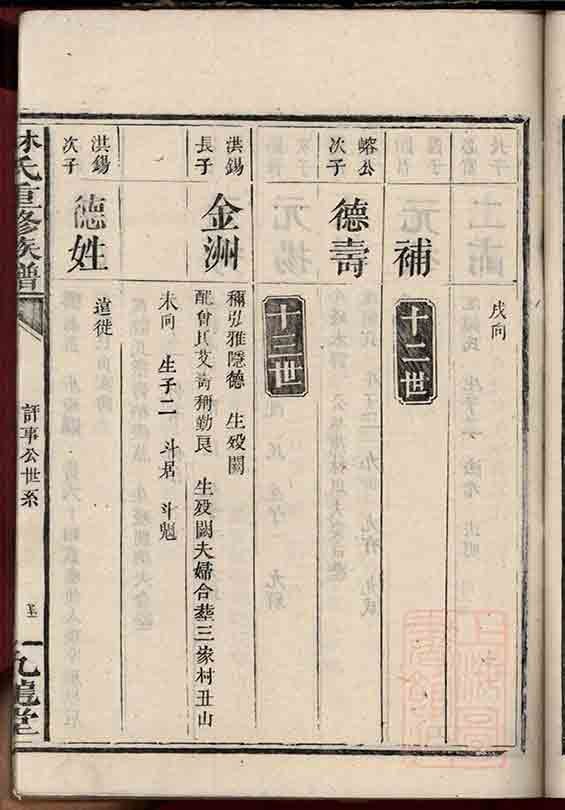 戌向
補
十二世
嵱公
次子
德壽
十三世
洪錫
長子
金洲
稱弘雅隱德 生歿闕
配曾氏艾 稱勤艮 生歿闕夫婦合葬三家村丑山
未向 生子二 斗居 斗魁
洪錫
次子
德姓
遠徙
林氏重修族譜
評事公世系
九龍堂